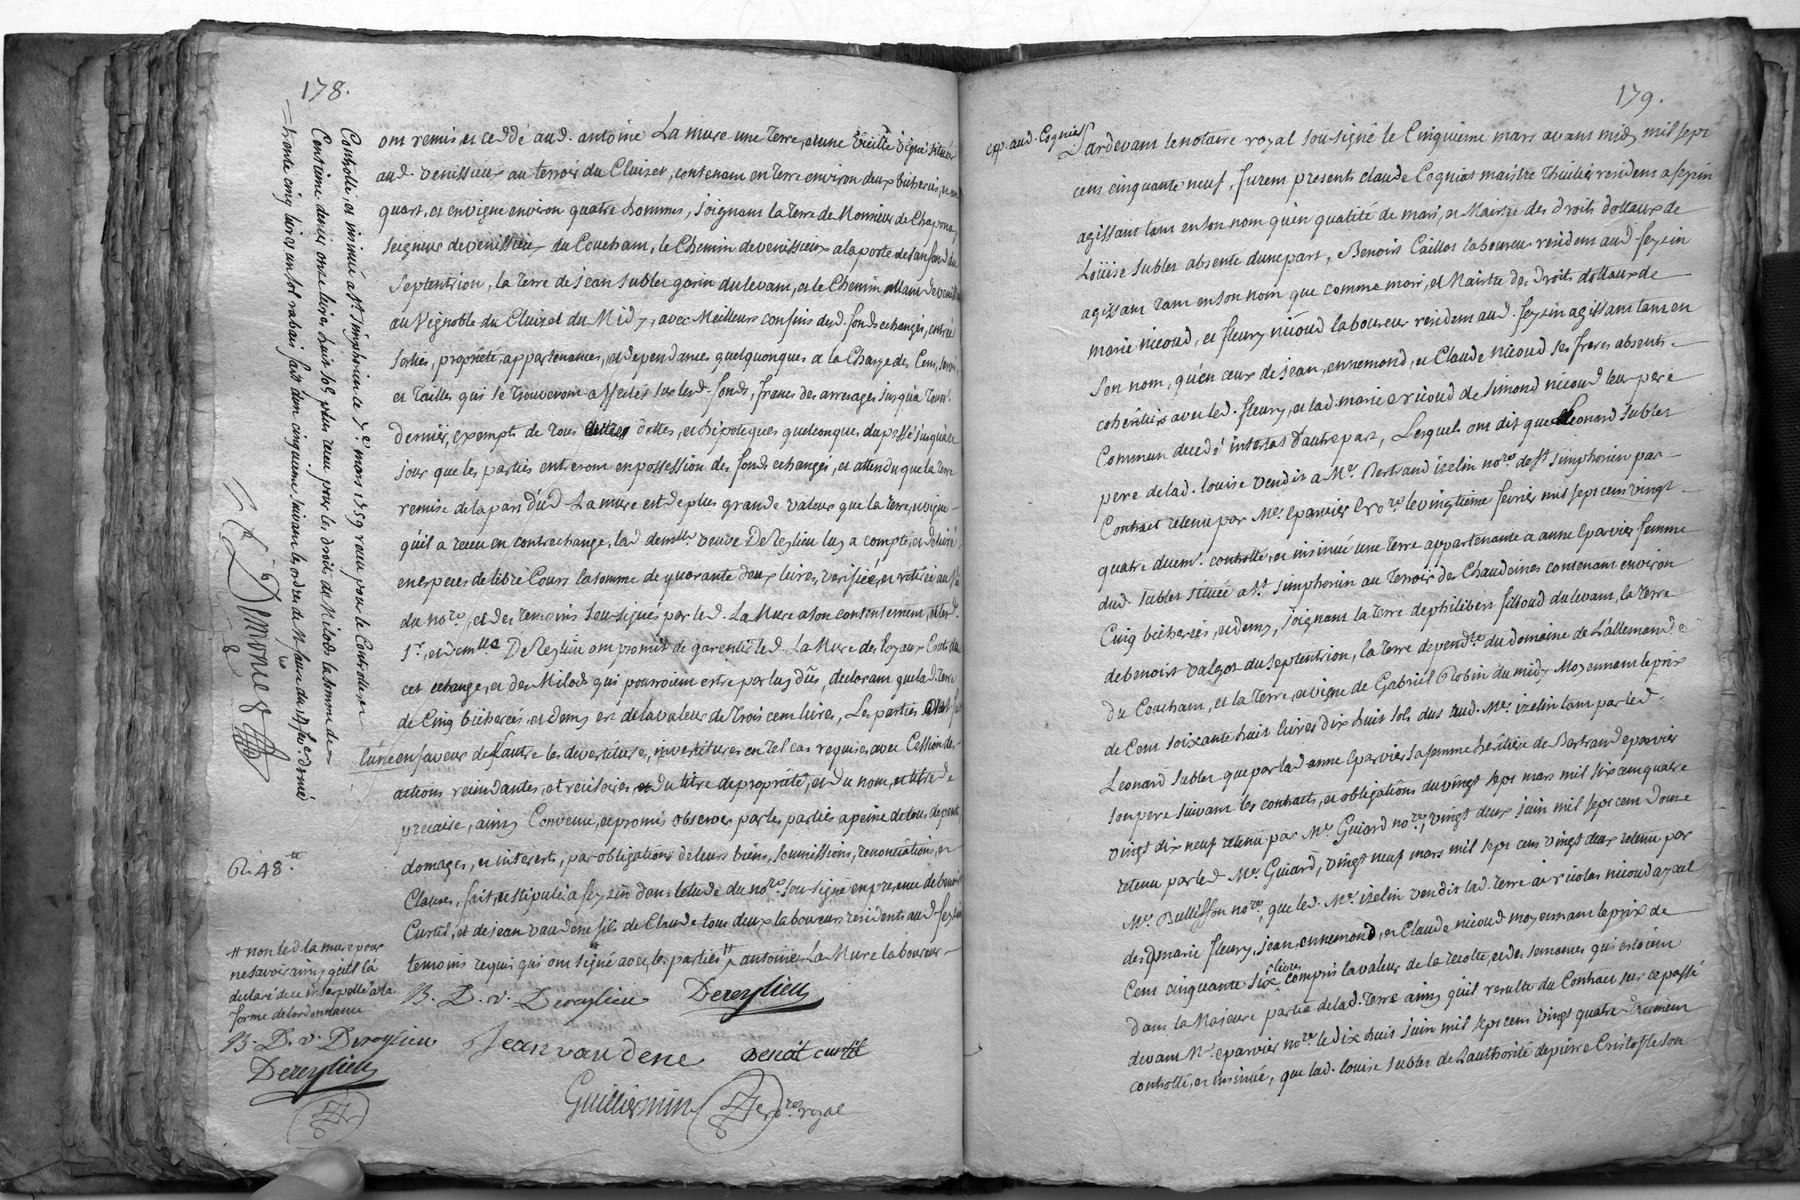 178.
ont remis et ceddé aud. antoine La mure une Terre, et une vieille vigne située
aud. venissieux au terroir du Cluizet, contenant en Terre environ deux bicherées, un
quart, et en vigne environ quatre hommes, joignant la Terre de Monsieur de Chaponay
seigneur de venissieux du Couchant, le Chemin de venissieux a la porte de
Septentrion, la Terre de jean sublet garin du levant, et le Chemin allant de
au vignoble du Cluizet du Midy, avec Meilleurs confins desd. fonds echangés, entrées
sorties, proprietés, appartenances, et dependances quelquonques a la Charge des Cens, servis
et Tailles qui se Trouveront affectés sur lesd. fonds, francs des arrerages jusqu'a
dernier, exempts de Tous dettes, et hipoteques quelconques du passé jusqu'a ce
jour que les parties entreront en possession des fonds echangés, et attendu que la terre
remise de la part dud. La mure est de plus grande valeur que la terre, et vigne
qu'il a receu en contrechange, lad. demlle. veuve De Reylieu luy a compté, et delivré
en especes de libre Cours la somme de quarante deux livres, verifiée, et retirée au
du nore., et des temoins sousignés par led. La Mure a son contentement, et led.
sr. et demlle. De Reylieu ont promis de garentir led. La Mure des loyaux Couts
cet echange, et des Milods qui pourroient estre par luy dûs, declarant que lad. Terre
de Cinq bicherées, et demy est de la valeur de Trois cent livres, Les parties
l'une en faveur de L'autre les devestitures, investitures en tel cas requises avec Cession des
actions rescindantes, et rescisoires, et du titre de proprieté, et du nom, et titre de
precaire, ainsy Convenu, et promis observer par les parties a peine de tous depens,
domages, et interests, par obligations de leurs biens, soumissions, renonciations, et
Clauses, fait, et stipulé a feyzin dans l'etude du nore. sousigné en presence de benoit
Curtil, et de jean vaudene fils de Claude tous deux laboureurs residents aud. feyzin
temoins requis qui ont signé avec les parties # antoine La Mure laboureur
B. D. v. Dereylieu Dereylieu
Jean vaudene benoit curtil
Guilliermin nore. royal
Controllé, et insinué a St. simphorien le 7e. mars 1759 receu pour le Controlle, et
Centieme denier onze livres huit sols plus receu pour les droits de Milods la somme de
trente cinq livres un sol rabais fait d'un cinquieme suivant les ordres de M.
Simonet
48.
# non led. la mure pour
ne savoir ainsy qu'il l'a
declaré de ce interpellé a la
forme de l'ordonnance
B. D. v. Dereylieu
Dereylieu
179.
exp. aud. Cogniat
Pardevant le notaire royal sousigné le Cinquieme mars avant midy mil sept
cens cinquante neuf, furent presents claude Cogniat maistre Thuilier resident a feyzin
agissant tant en son nom qu'en qualité de mari, et Maistre des droits dottaux de
Loüise Sublet absente d'une part, Benoit Caillot laboureur resident aud. feyzin
agissant tant en son nom que comme mari, et Maistre des droits dottaux de
marie nicoud, et fleury nicoud laboureur resident aud. feyzin agissant tant en
son nom, qu'en ceux de jean, ennemond, et Claude nicoud ses freres absents
coheritiers avec led. fleury, et lad. marie nicoud de simond nicoud leur pere
Commun decedé intestat d'autre part, Lesquels ont dit que Leonard sublet
pere de lad. louise vendit a Me. Bertrand izelin nore. de St. simphorien par
Contract retenu par Me. eparvier nore. le vingtieme fevrier mil sept cent vingt
quatre duemt. controllé, et insinué une Terre appartenante a anne eparvier femme
dud. sublet située a St. simphorien au Terroir des Chaudeines contenant environ
Cinq bicherées, et demy, joignant la terre de philibert filliond du levant, la terre
de benoist valgot du septentrion, la Terre dependte. du domaine de L'allemande
du Couchant, et la Terre, et vigne de Gabriël Robin du midy Moyennant le prix
de Cent soixante huit livres dix huit sols dus aud. Me. izelin tant par led.
Leonard sublet que par lad. anne eparvier sa femme héritiere de Bertrand eparvier
son pere suivant les contracts, et obligations du vingt sept mars mil six cent quatre
vingt dix neuf retenu par Me. Guiard nore., vingt deux juin mil sept cent douze
retenu par led. Me. Guiard, vingt neuf mars mil sept cent vingt deux retenu par
Me. Bullisson nore., que led. Me. izelin vendit lad. terre a nicolas nicoud ayeul
desd. marie, fleury, jean, ennemond, et Claude nicoud moyennant le prix de
Cent cinquante six livres compris la valeur de la recolte, et des semances qui estoient
dans la Majeure partie de lad. Terre ainsy qu'il resulte du Contract sur ce passé
devant Me. eparvier nore. le dix huit juin mil sept cent vingt quatre duement
controllé, et insinué, que lad. louise sublet de L'authorité de pierre Cristophle son